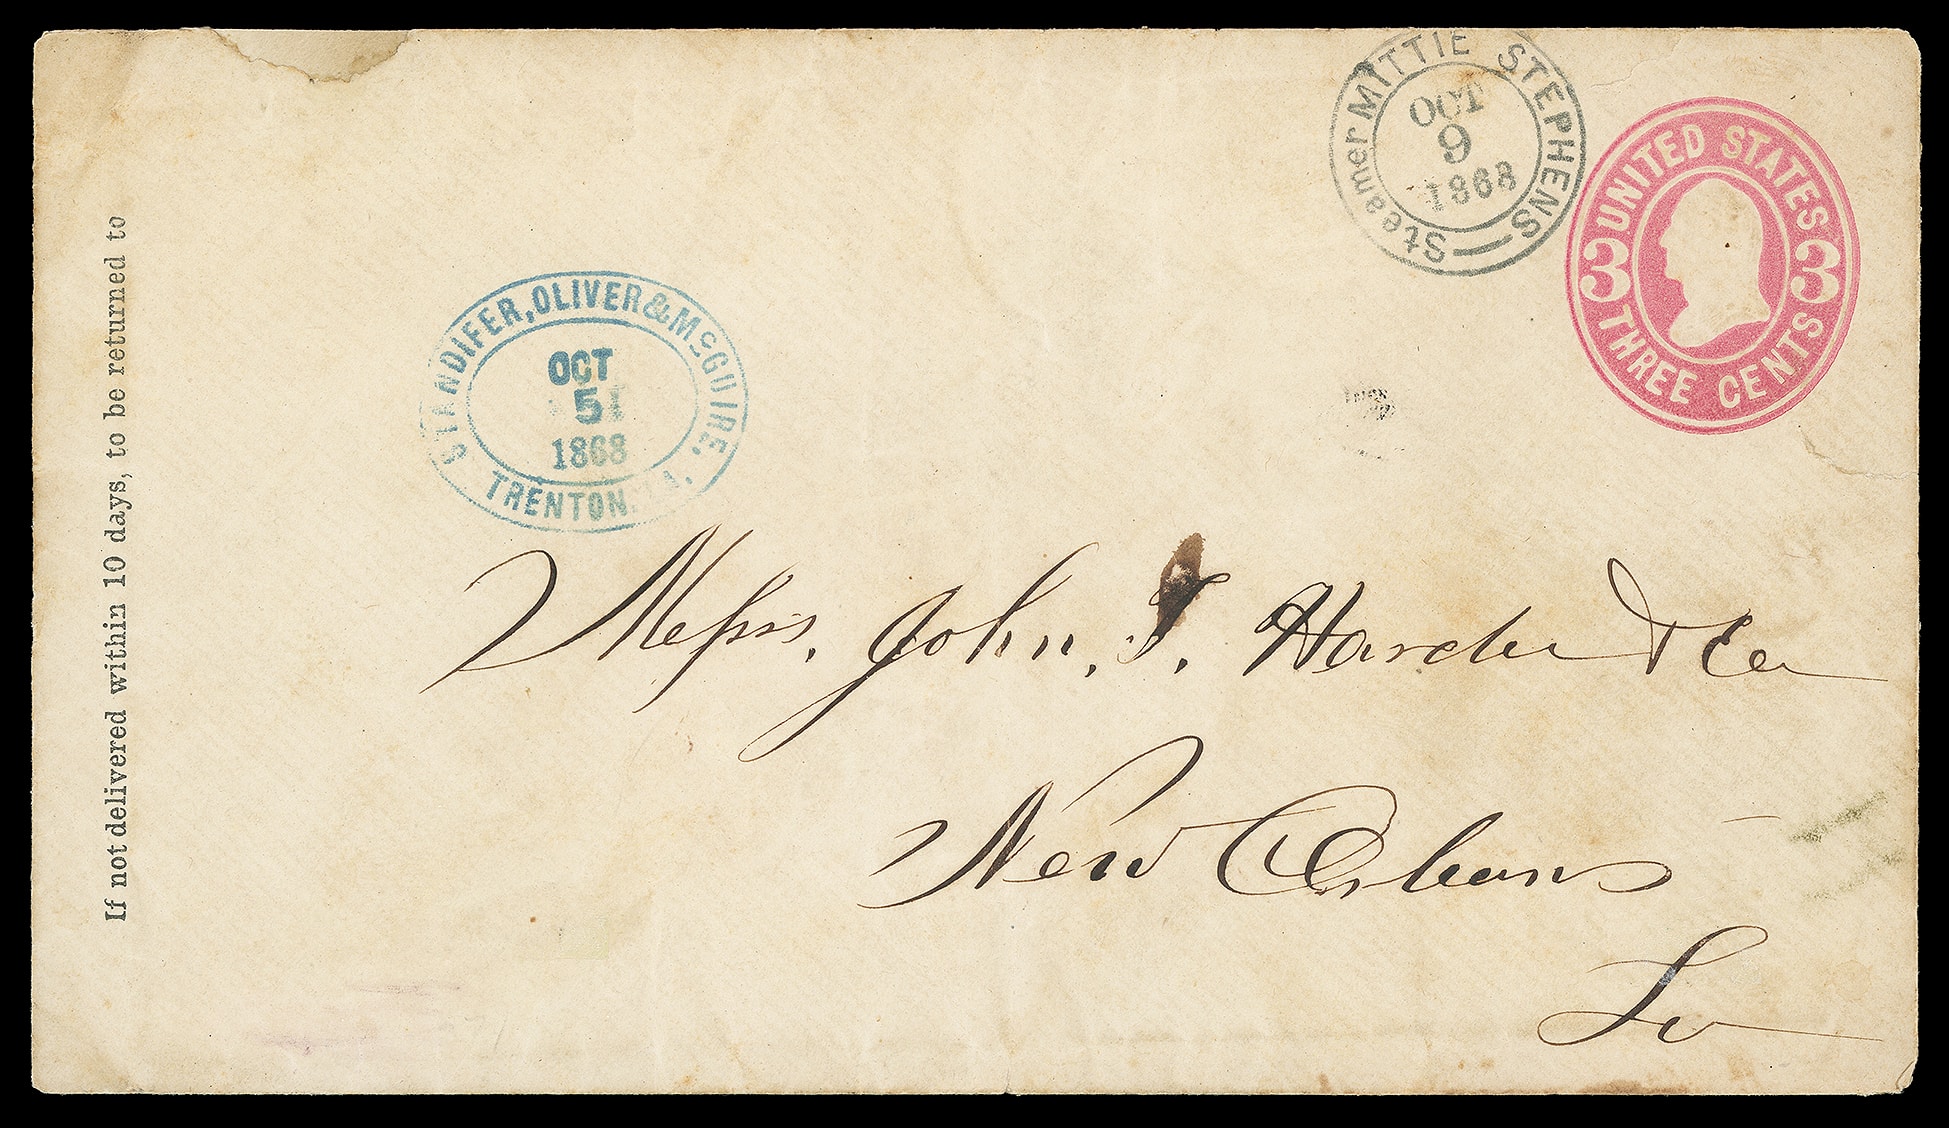 If not delivered within 10 days, to be returned to
STANDIFER, OLIVER & McGUIRE,
OCT
5
1868
TRENTON
Steamer MITTIE STEPHENS
OCT
9
1868
UNITED STATES
3 3
THREE CENTS
Messrs. John. T. Hardie & Co
New Orleans
La